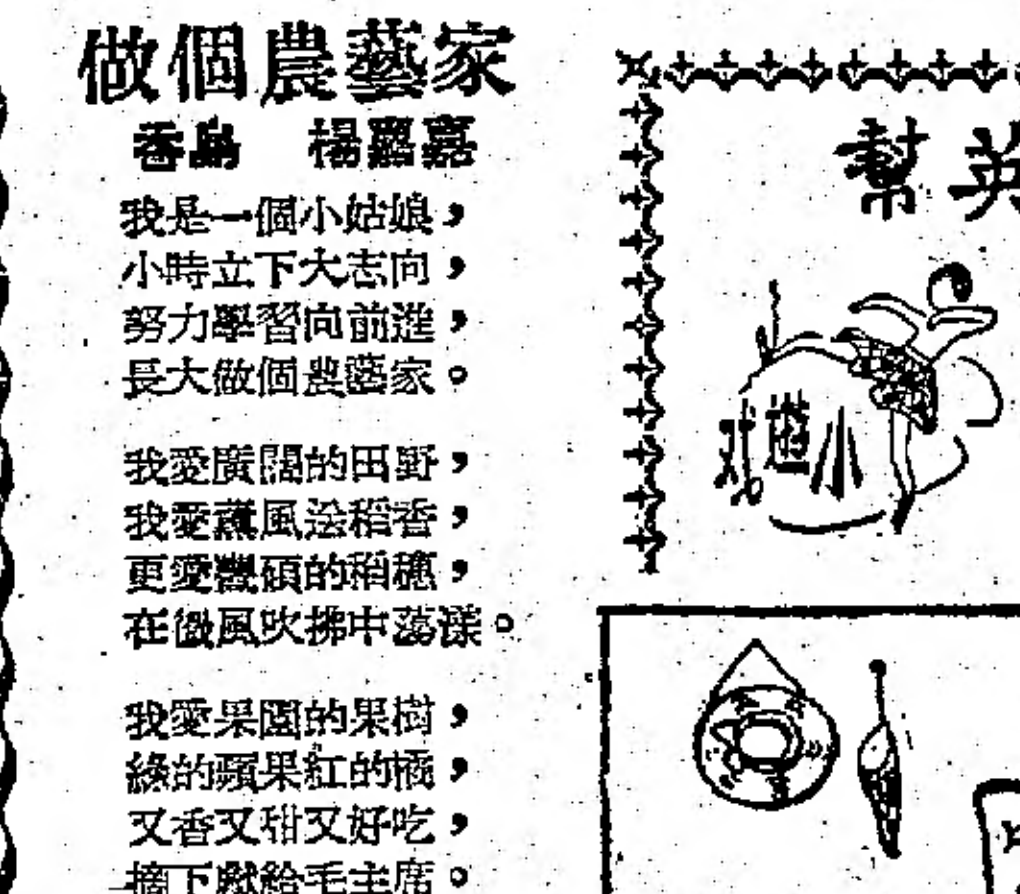 做個農藝家
香島　楊露嘉
我是一個小姑娘，
小時立下大志向，
努力學習向前進，
長大做個農藝家。
我愛廣闊的田野，
我愛薰風送稻香，
更愛豐碩的稻穗，
在微風吹拂中蕩漾。
我愛果園的果樹，
綠的蘋果紅的橘，
又香又甜又好吃，
摘下獻給毛主席。
幫英
小遊戏